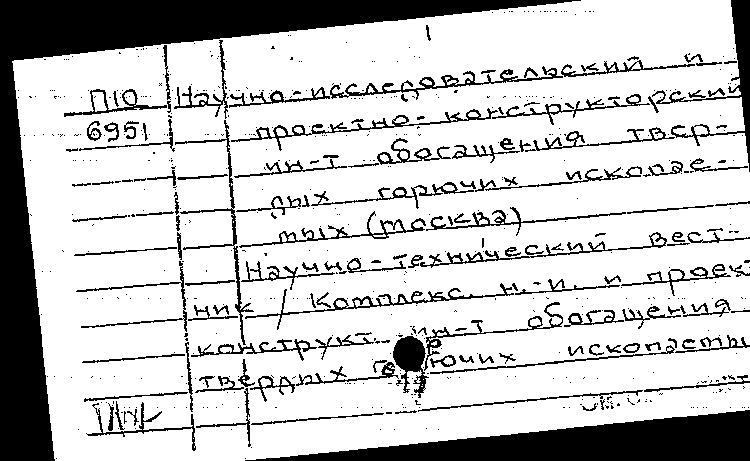 П10 Научно-исследовательский и
6951 проектно-конструкторский
ин-т обогащения твер-
дых горючих ископае-
мых (Москва)
Научно-технический вест-
ник / Комплекс. н.-и. и проект
конструкт. ин-т обогащения
твердых горючих ископаемы
См. об.